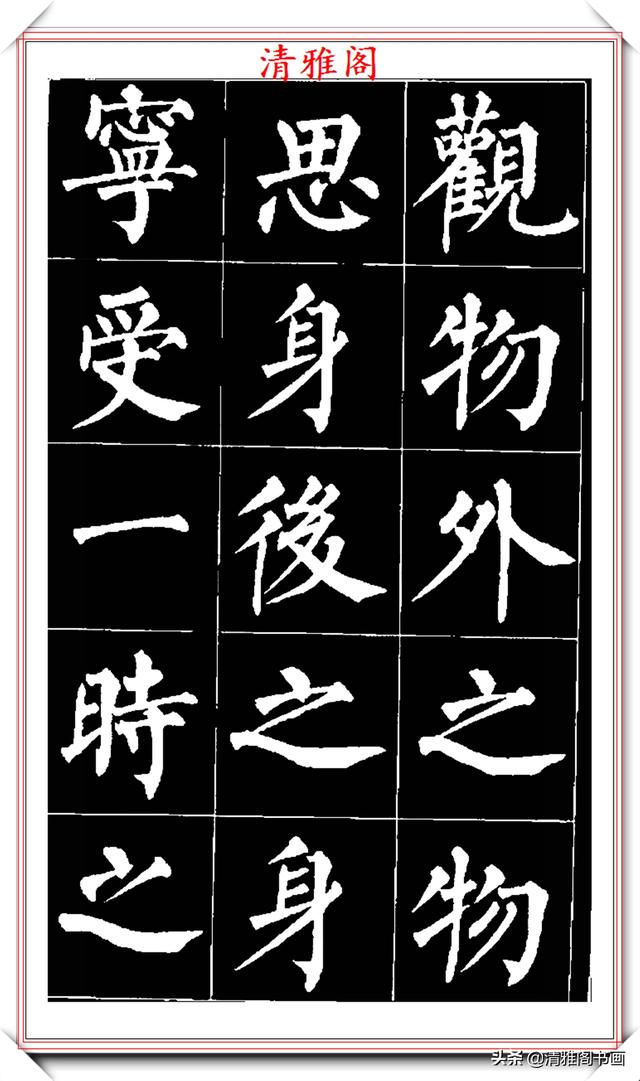 清雅阁
觀物外之物
思身後之身
寧受一時之
头条 @清雅阁书画